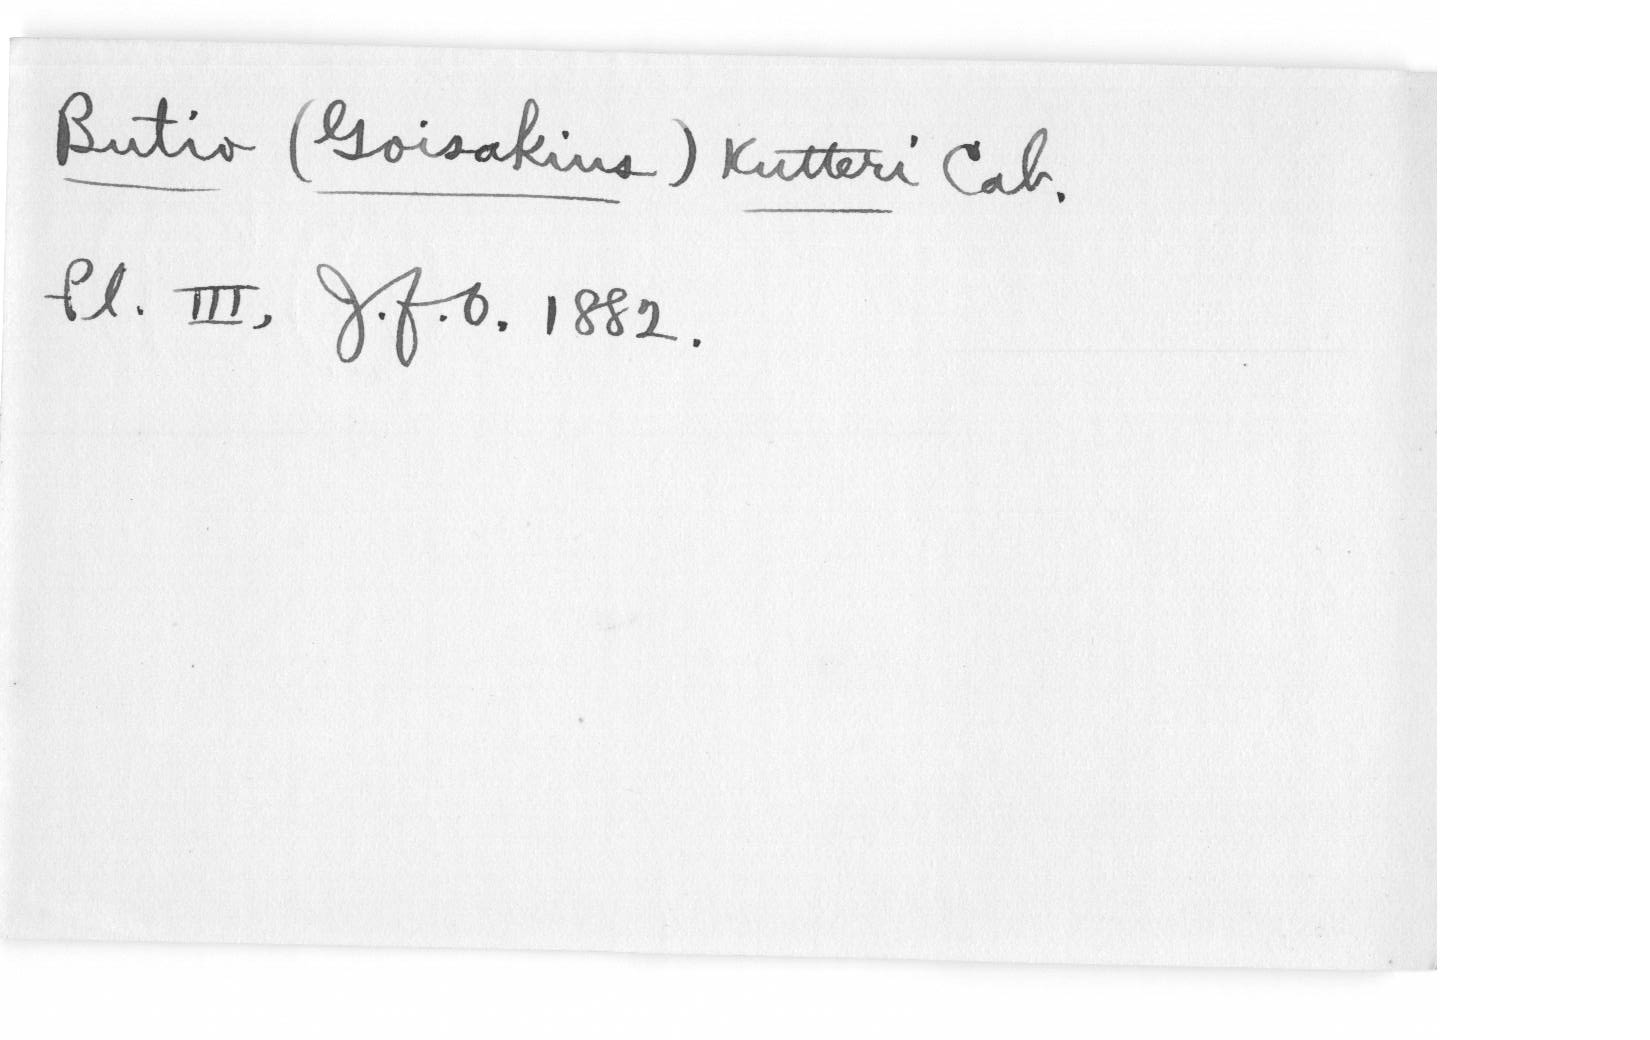 Butio (Goisakius) Kutteri Cab.
Pl. III, J.f.O. 1882.